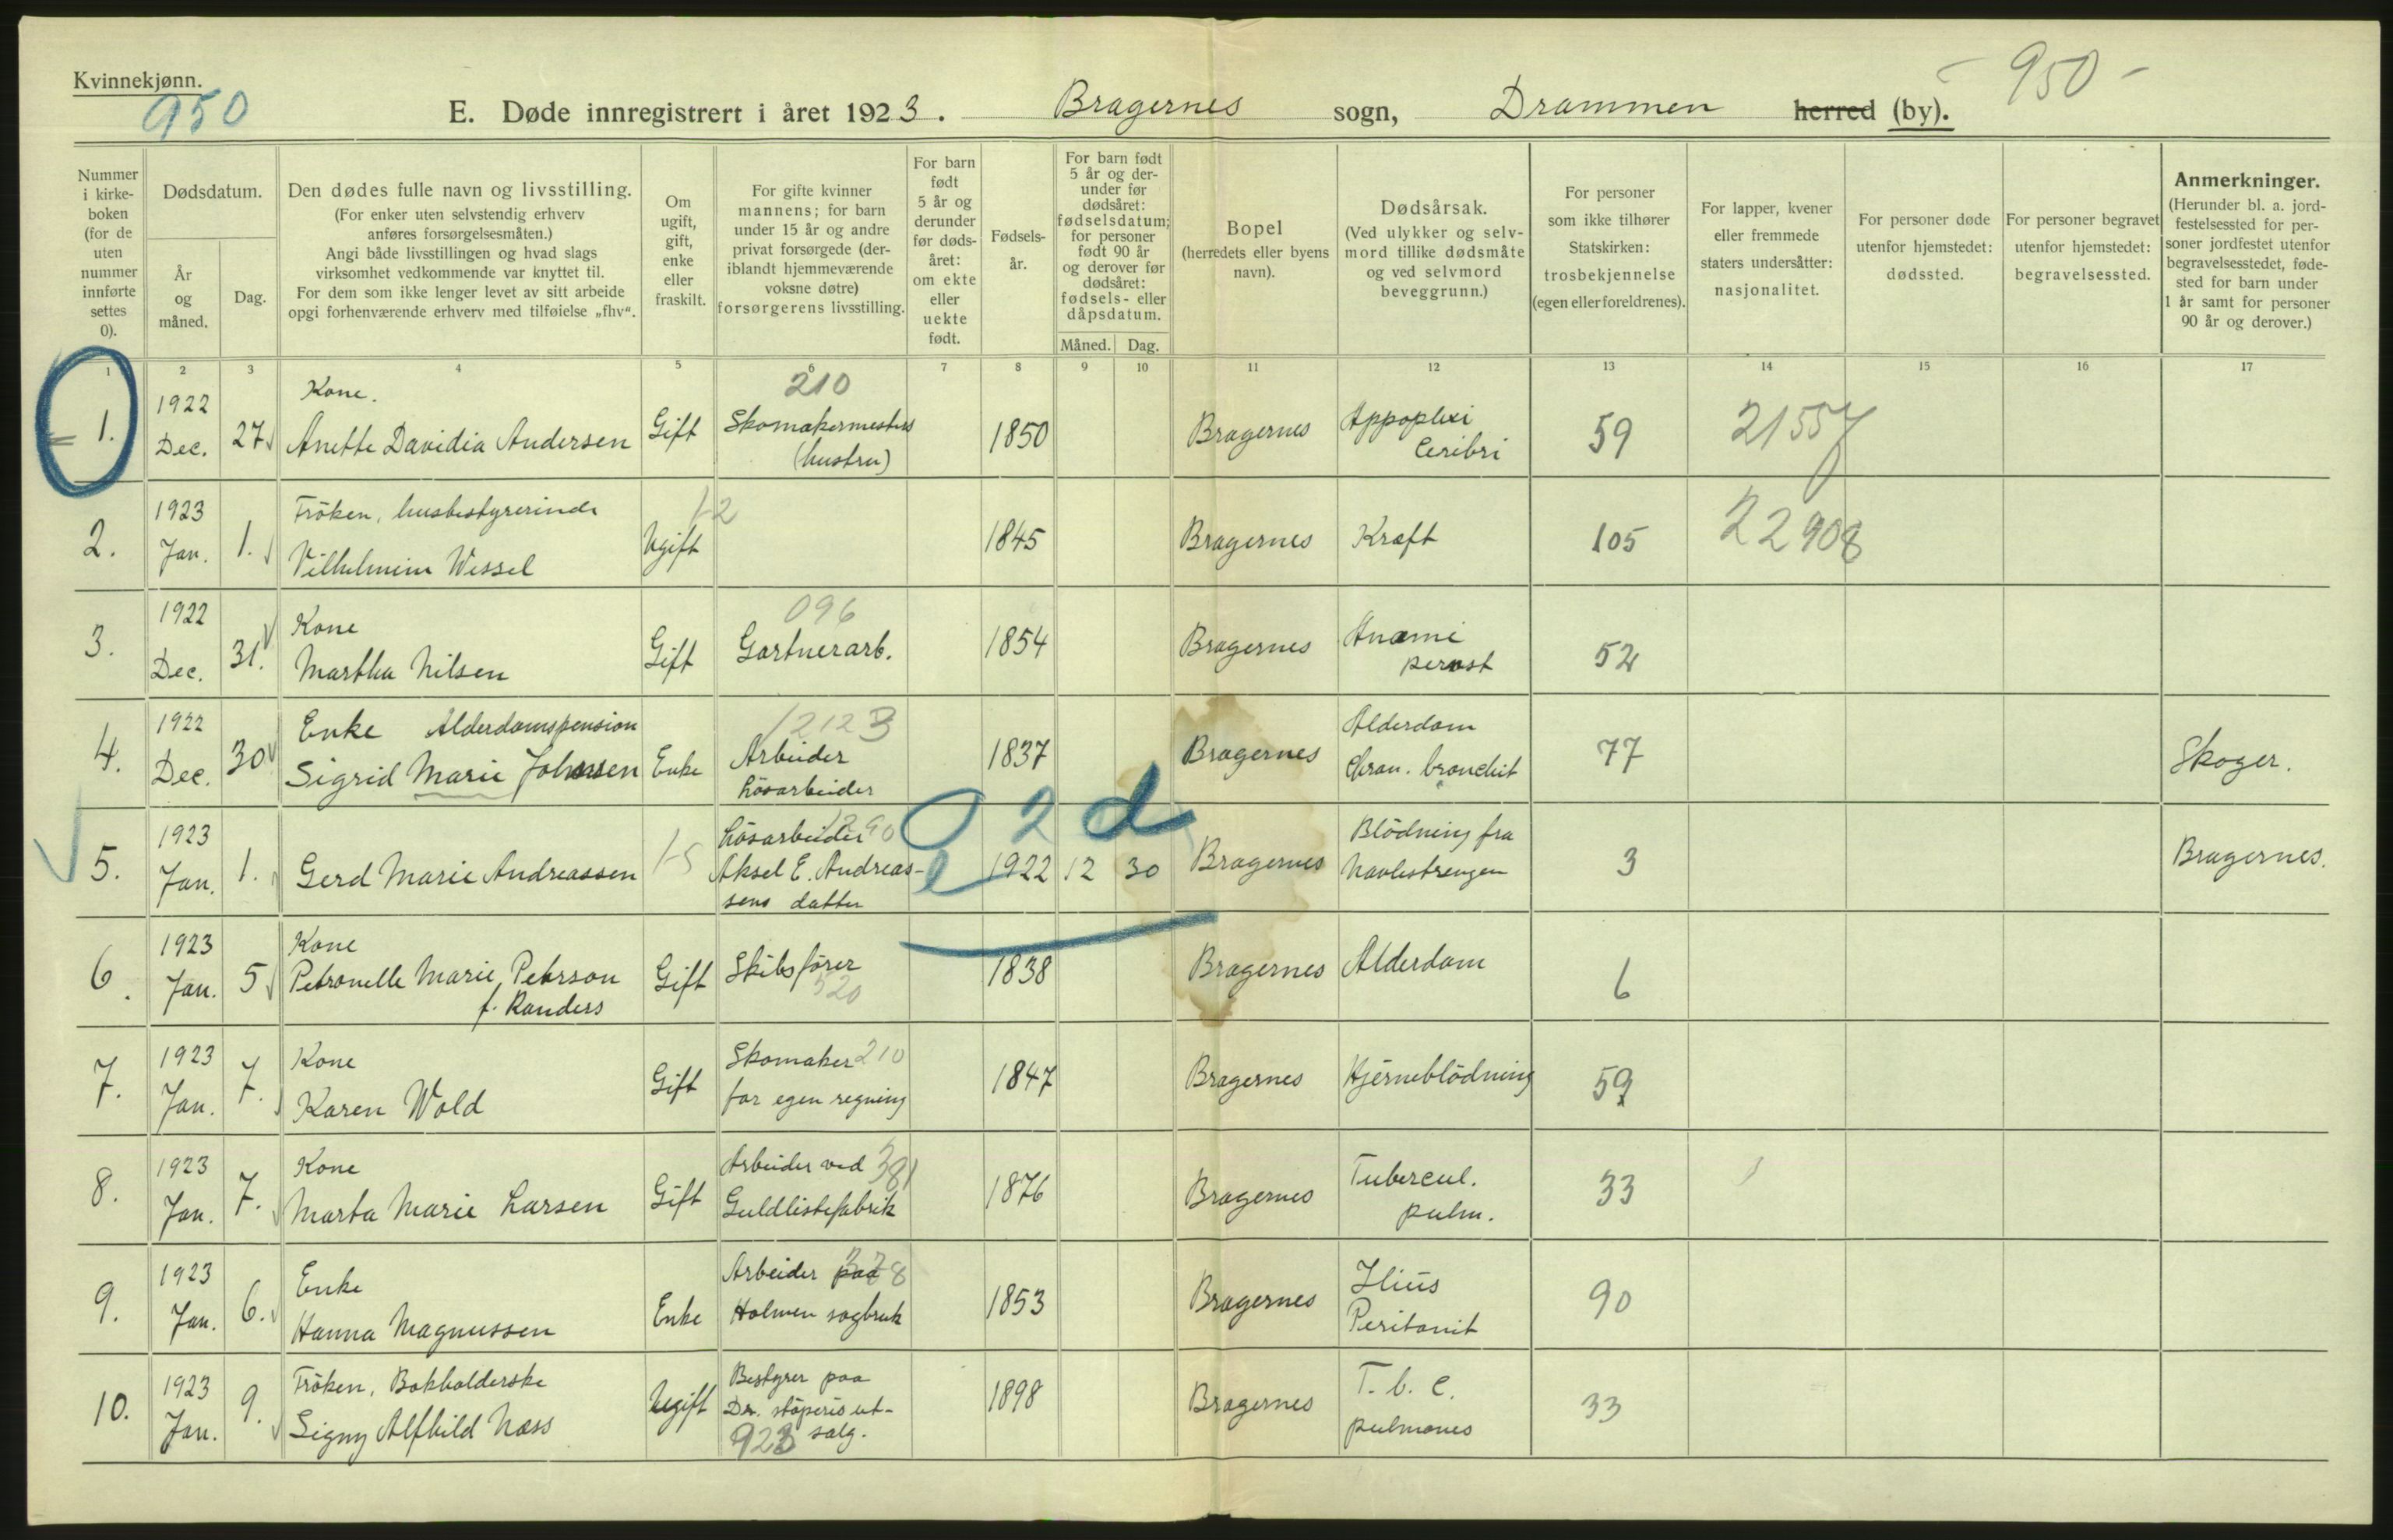 Kvinnekjønn.
950
- 950 -
E. Døde innregistrert i året 1923. Bragernes sogn, Drammen herred (by).
Nummer
i kirke-
boken
(for de
uten
nummer
innførte
settes
0).
Dødsdatum.
År
og
måned.
Dag.
Den dødes fulle navn og livsstilling.
(For enker uten selvstendig erhverv
anføres forsørgelsesmåten.)
Angi både livsstillingen og hvad slags
virksomhet vedkommende var knyttet til.
For dem som ikke lenger levet av sitt arbeide
opgi forhenværende erhverv med tilføielse „fhv“.
Om
ugift,
gift,
enke
eller
fraskilt.
For gifte kvinner
mannens; for barn
under 15 år og andre
privat forsørgede (der-
iblandt hjemmeværende
voksne døtre)
forsørgerens livsstilling.
For barn
født
5 år og
derunder
før døds-
året:
om ekte
eller
uekte
født.
Fødsels-
år.
For barn født
5 år og der-
under før
dødsåret:
fødselsdatum;
for personer
født 90 år
og derover før
dødsåret:
fødsels- eller
dåpsdatum.
Måned. Dag.
Bopel
(herredets eller byens
navn).
Dødsårsak.
(Ved ulykker og selv-
mord tillike dødsmåte
og ved selvmord
beveggrunn.)
For personer
som ikke tilhører
Statskirken:
trosbekjennelse
(egen eller foreldrenes).
For lapper, kvener
eller fremmede
staters undersåtter:
nasjonalitet.
For personer døde
utenfor hjemstedet:
dødssted.
For personer begravet
utenfor hjemstedet:
begravelsessted.
Anmerkninger.
(Herunder bl. a. jord-
festelsessted for per-
soner jordfestet utenfor
begravelsesstedet, føde-
sted for barn under
1 år samt for personer
90 år og derover.)
1 2 3 4 5 6 7 8 9 10 11 12 13 14 15 16 17
1.
1922
Dec.
27
Kone.
Anette Davidia Andersen
Gift
210
Skomakermesters
(hustru)
1850
Bragernes
Appoplexi
Ceribri
59
21557
2.
1923
Jan.
1.
Fröken, husbestyrerinde
Vilhelmine Wessel
Ugift
1-2
1845
Bragernes
Kræft
105
22908
3.
1922
Dec.
31.
Kone
Martha Nilsen
Gift
096
Gartnerarb.
1854
Bragernes
Anæmi
52
4.
1922
Dec.
30
Enke Alderdomspension
Sigrid Marie Johnsen
Enke
1212 3
Arbeider
Lösarbeider
1837
Bragernes
Alderdom
Chron. bronchit
77
Skoger.
5.
1923
Jan.
1.
Gerd Marie Andreassen
1-5
Lösarbeider 1290
Aksel E. Andreas-
sens datter
0 2 d
e
1922 12 30
Bragernes
Blödning fra
Navlestrengen
3
Bragernes.
6.
1923
Jan.
5
Kone
Petronelle Marie Peterson
f. Randers
Gift
Skibsförer
520
1838
Bragernes
Alderdom
6
7.
1923
Jan.
7.
Kone
Karen Wold
Gift
Skomaker 210
for egen regning
1847
Bragernes
Hjerneblödning
59
8.
1923
Jan.
7.
Kone
Marta Marie Larsen
Gift
Arbeider ved 381
Guldlistefabrik
1876
Bragernes
Tubercul.
pulm.
33
9.
1923
Jan.
6.
Enke
Hanna Magnussen
Enke
Arbeider paa 378
Holmen sagbruk
1853
Bragernes
Ilius
Peritonit
90
10.
1923
Jan.
9.
Fröken, Bokholderske
Signy Alfhild Næss
Ugift
Bestyrer paa
Dr. stöperis ut-
salg.
923
1898
Bragernes
T. b. c.
pulmones
33